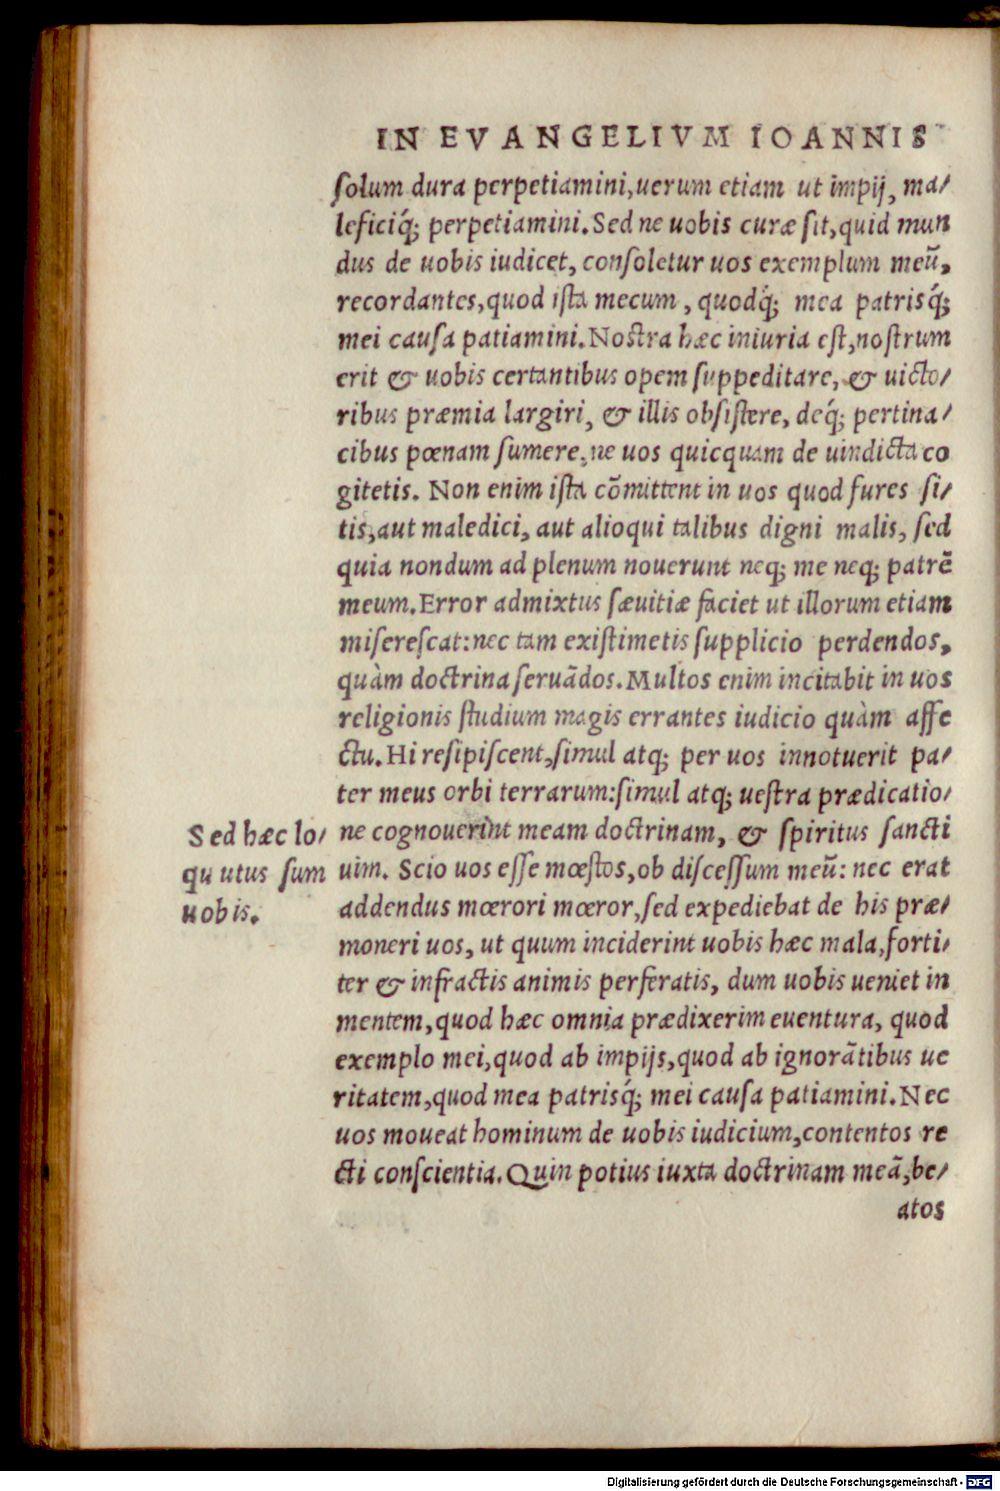 IN EVANGELIVM IOANNIS
solum dura perpetiamini, uerum etiam ut impij, ma/
leficiq́; perpetiamini. Sed ne uobis curæ sit, quid mun
dus de uobis iudicet, consoletur uos exemplum meũ,
recordantes, quod ista mecum, quodq́; mea patrisq́;
mei causa patiamini. Nostra hæc iniuria est, nostrum
erit & uobis certantibus opem suppeditare, & uicto/
ribus præmia largiri, & illis obsistere, deq́; pertina/
cibus pœnam sumere, ne uos quicquam de uindicta co
gitetis. Non enim ista cõmittent in uos quod fures si/
tis, aut maledici, aut alioqui talibus digni malis, sed
quia nondum ad plenum nouerunt neq; me neq; patrẽ
meum. Error admixtus sæuitiæ faciet ut illorum etiam
miserescat: nec tam existimetis supplicio perdendos,
quàm doctrina seruãdos. Multos enim incitabit in uos
religionis studium magis errantes iudicio quàm affe
ctu. Hi resipiscent, simul atq; per uos innotuerit pa/
ter meus orbi terrarum: simul atq; uestra prædicatio/
Sed hæc lo/
qu utus sum
uobis.
ne cognouerint meam doctrinam, & spiritus sancti
uim. Scio uos esse mœstos, ob discessum meũ: nec erat
addendus mœrori mœror, sed expediebat de his præ/
moneri uos, ut quum inciderint uobis hæc mala, forti/
ter & infractis animis perferatis, dum uobis ueniet in
mentem, quod hæc omnia prædixerim euentura, quod
exemplo mei, quod ab impijs, quod ab ignorãtibus ue
ritatem, quod mea patrisq́; mei causa patiamini. Nec
uos moueat hominum de uobis iudicium, contentos re
cti conscientia. Quin potius iuxta doctrinam meã, be/
atos
Digitalisierung gefördert durch die Deutsche Forschungsgemeinschaft - DFG